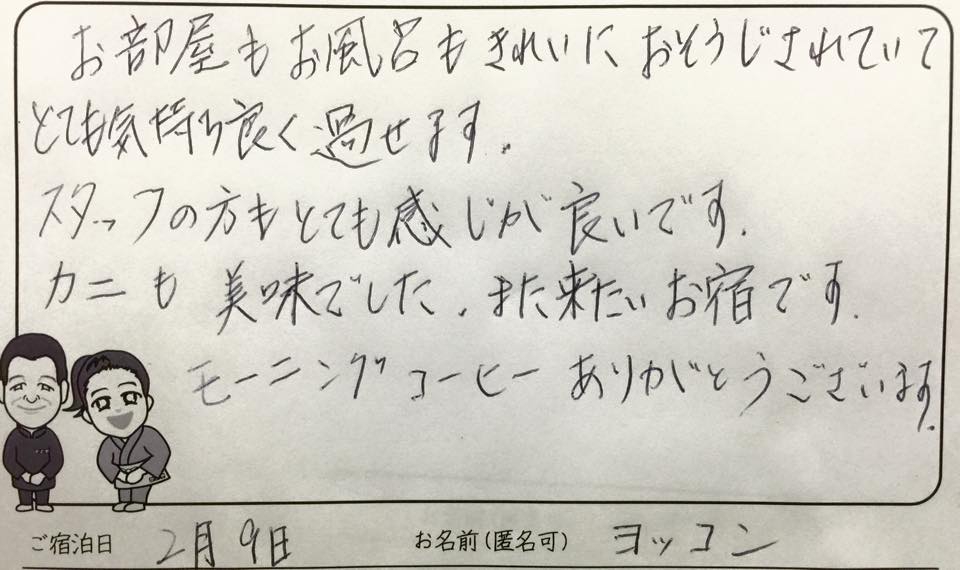 お部屋もお風呂もきれいにおそうじされていて
とても気持ち良く過せます.
スタッフの方もとても感じが良いです.
カニも美味でした.また来たいお宿です.
モーニングコーヒーありがとうございます.
ご宿泊日 2月9日 お名前(匿名可) ヨッコン